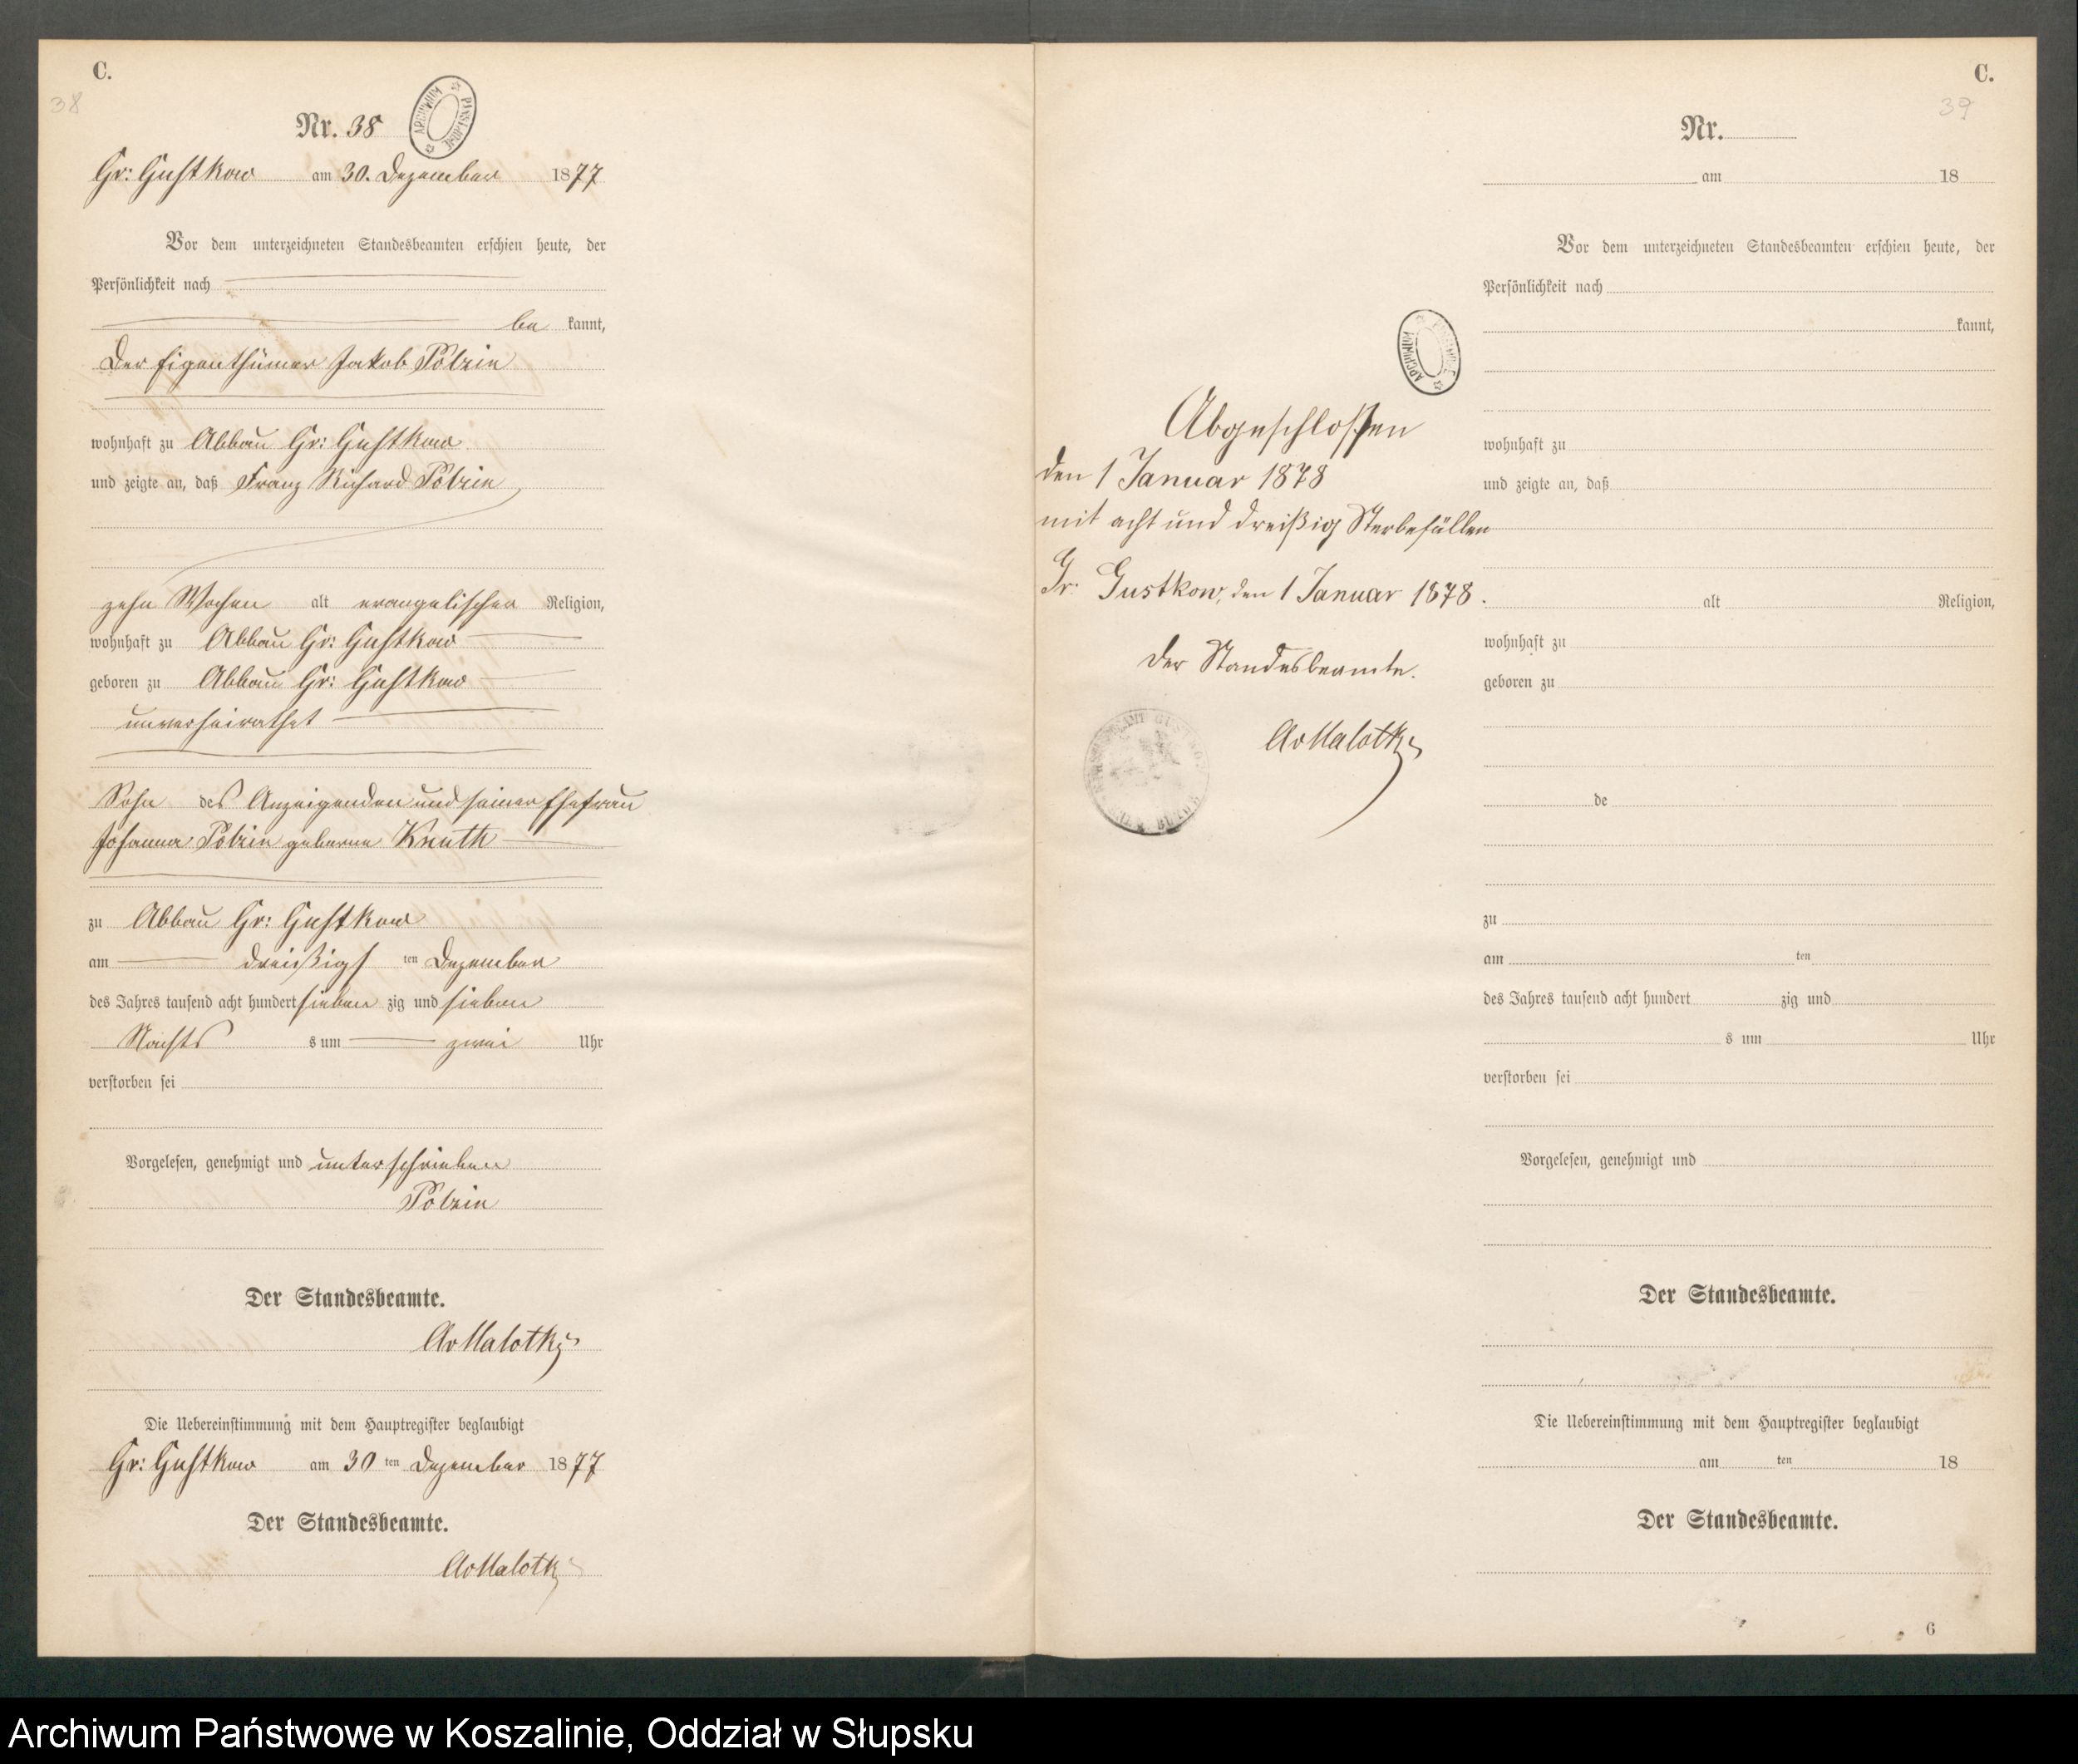 C.
38
Nr. 38
ARCHIWUM PAŃSTWOWE
Gr: Gustkow am 30. Dezember 1877
Vor dem unterzeichneten Standesbeamten erschien heute, der
Persönlichkeit nach
be kannt,
Der Eigenthümer Jakob Polzin
wohnhaft zu Abbau Gr: Gustkow
und zeigte an, daß Franz Richard Polzin
zehn Wochen alt evangelischer Religion,
wohnhaft zu Abbau Gr: Gustkow
geboren zu Abbau Gr: Gustkow
unverheirathet
Sohn des Anzeigenden und seiner Ehefrau
Johanna Polzin geborne Knuth
zu Abbau Gr: Gustkow
am dreißigs ten Dezember
des Jahres tausend acht hundert sieben zig und sieben
Nachts s um zwei Uhr
verstorben sei
Vorgelesen, genehmigt und unterschrieben
Polzin
Der Standesbeamte.
AvMalotky
Die Uebereinstimmung mit dem Hauptregister beglaubigt
Gr: Gustkow am 30 ten Dezember 1877
Der Standesbeamte.
AvMalotky
Abgeschlossen
den 1 Januar 1878
mit acht und dreißig Sterbefällen
Gr: Gustkow, den 1 Januar 1878.
Der Standesbeamte.
AvMalotky
C.
39
Nr.
am 18
Vor dem unterzeichneten Standesbeamten erschien heute, der
Persönlichkeit nach
kannt,
wohnhaft zu
und zeigte an, daß
alt Religion,
wohnhaft zu
geboren zu
de
zu
am ten
des Jahres tausend acht hundert zig und
s um Uhr
verstorben sei
Vorgelesen, genehmigt und
Der Standesbeamte.
Die Uebereinstimmung mit dem Hauptregister beglaubigt
am ten 18
Der Standesbeamte.
6
Archiwum Państwowe w Koszalinie, Oddział w Słupsku